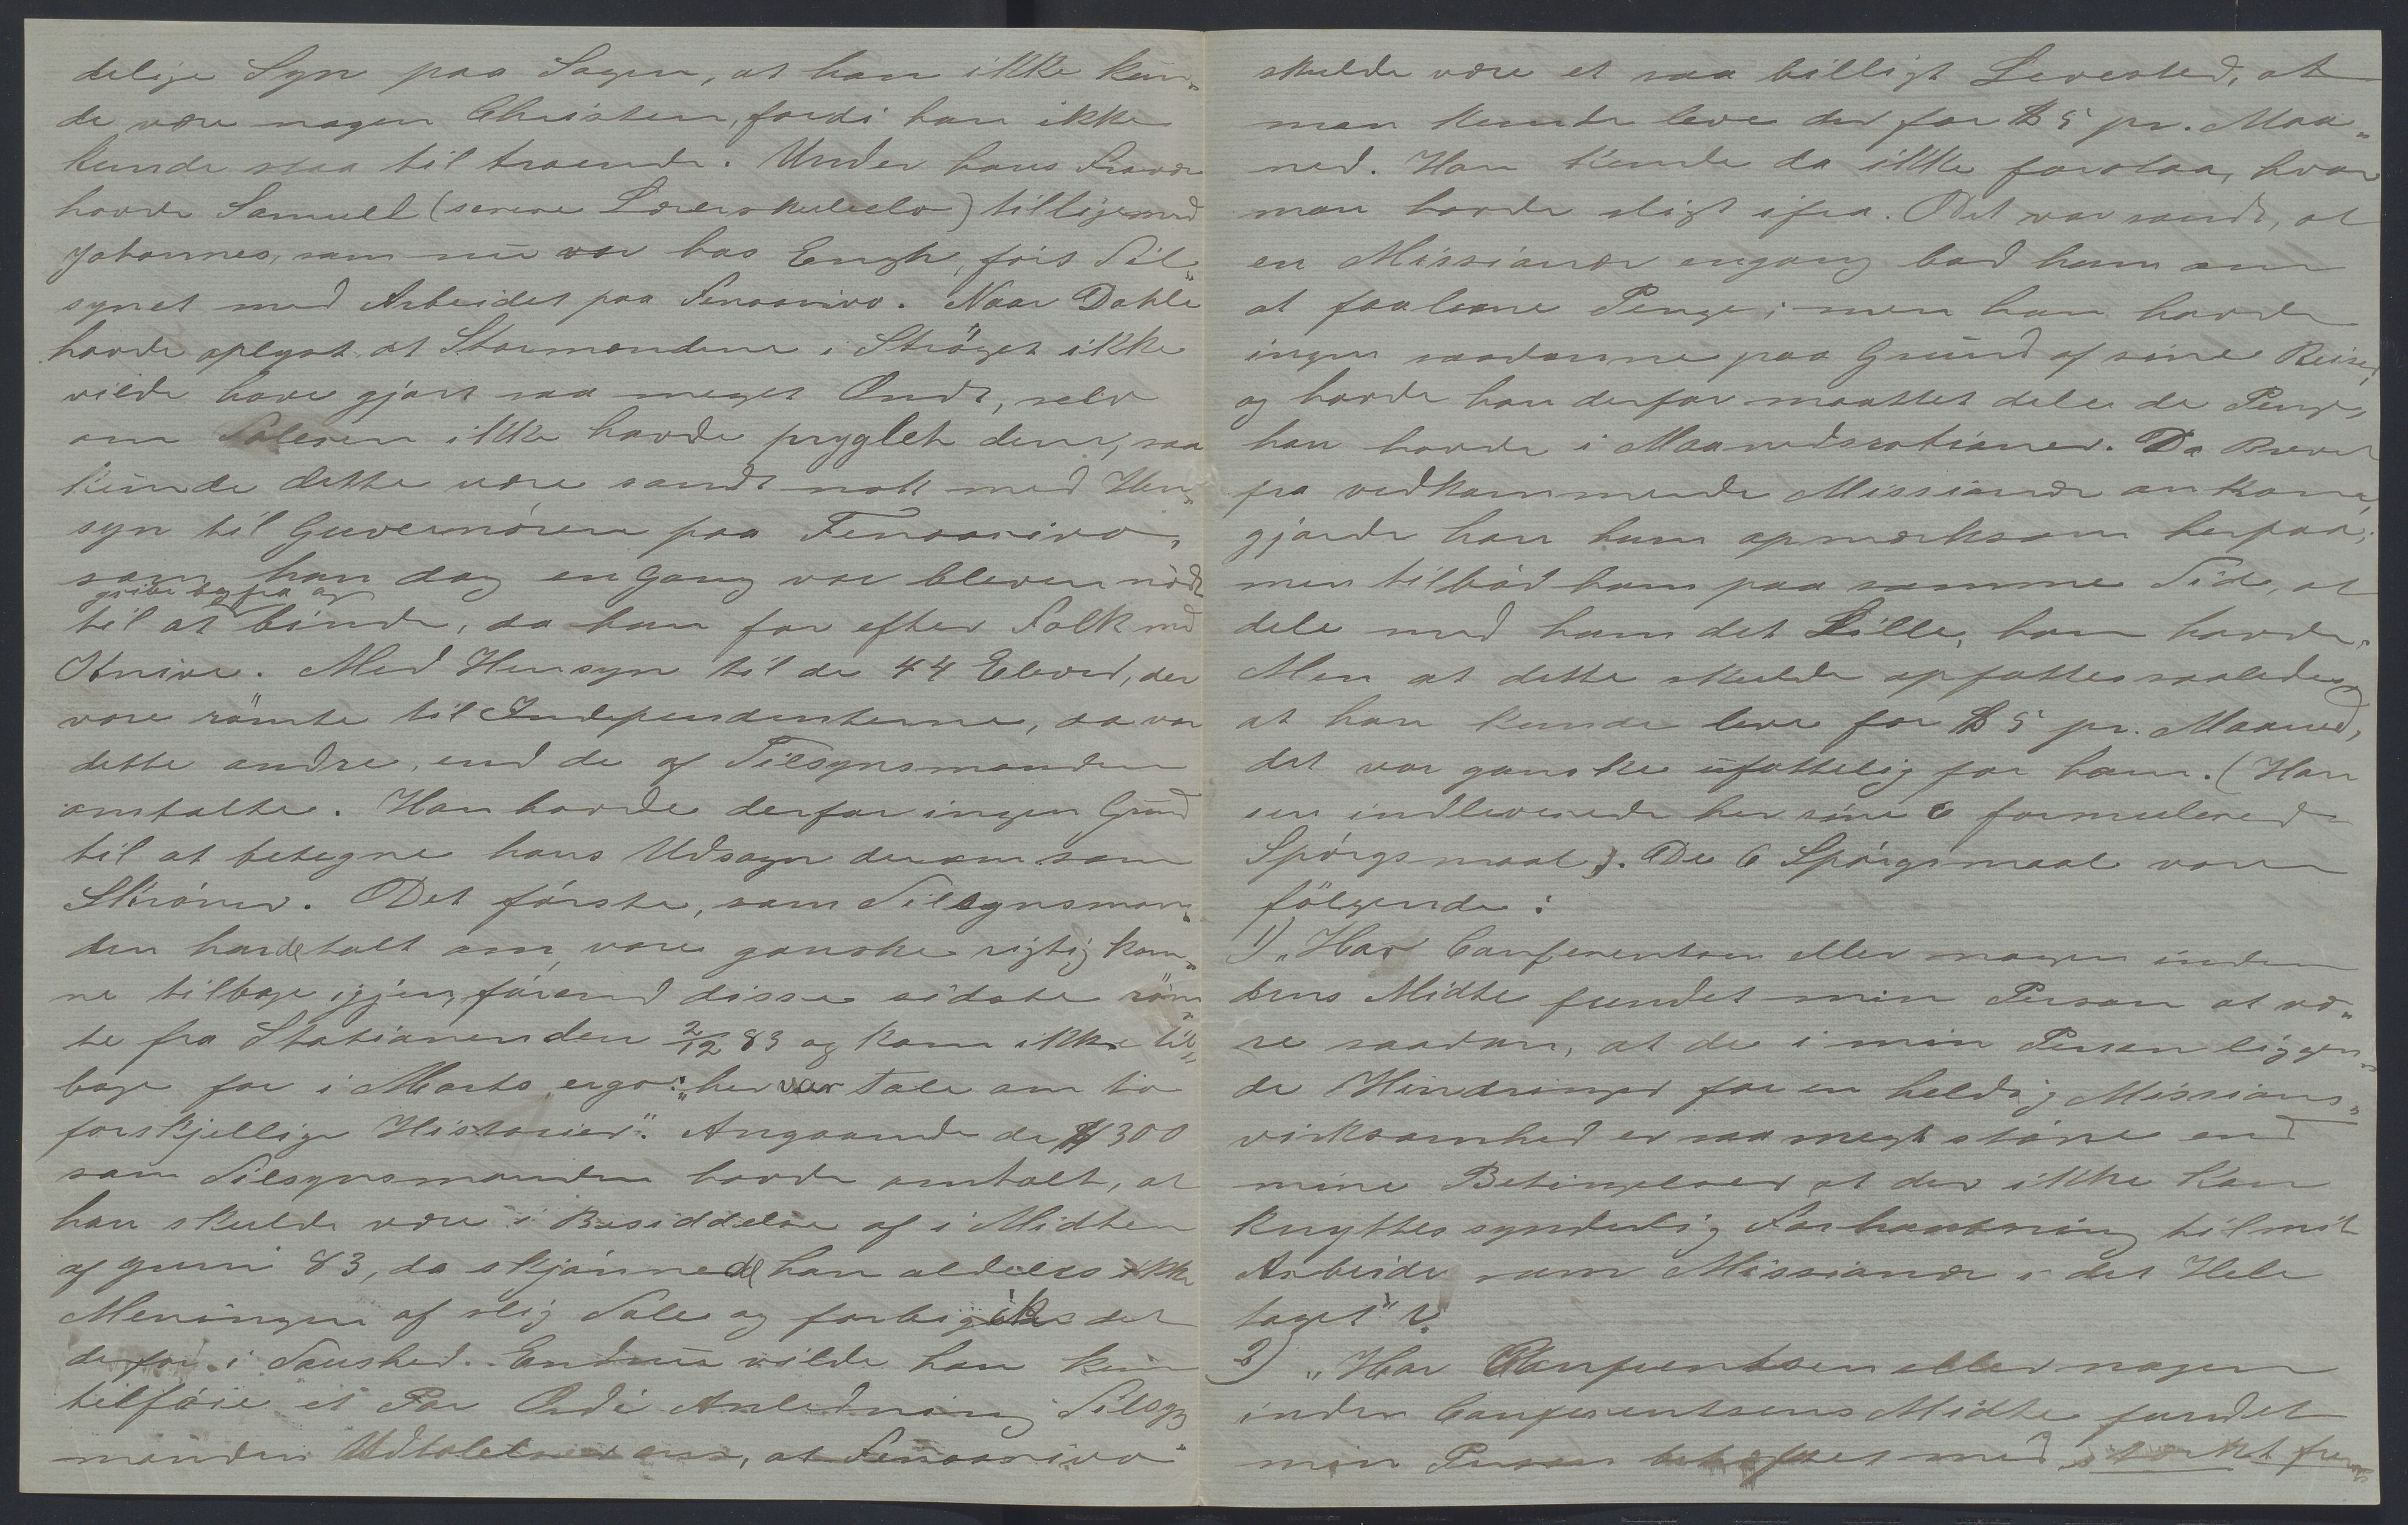 delige Syn paa Sagen, at han ikke kun„
de være nogen Christen, fordi han ikke
kunde staa til troende. Under hans Fravær
havde Samuel (senere Lærerskuleelev) tilligemed
Johannes, som nu var hos Engh, fört Til„
synet med Arbeidet paa Fenoarivo. Naar Dahle
havde oplyst, at Stormændene i Ströget ikke
vilde have gjort saa meget Ondt, selv
om Salesen ikke havde pryglet dem, saa
kunde dette være sandt nok med Hen„
syn til Guvernören paa Fenoarivo,
som han dog en Gang var bleven nödt
gribe bagfra og
til at binde, da han for efter Folk med
Knive. Med Hensyn til de 44 Elever, der
vare römte til Independenterne, da var
dette andre, end de af Tilsynsmanden
omtalte. Han havde derfor ingen Grund
til at betegne hans Udsagn derom som
Skröner. Det förste, som Tilsynsman„
den havde talt om, vare ganske rigtig kom„
ne tilbage igjen, förend disse sidste röm„
te fra Stationen den 2/12 83 og kom ikke til„
bage för i Marts, ergo: „her var Tale om to
forskjellige Historier". Angaaende de $ 300
som Tilsynsmanden havde omtalt, at
han skulde være i Besiddelse af i Midten
af Juni 83, da skjönnede han aldeles ikke
Meningen af slig Tale og forbigik det
derfor i Taushed. Endnu vilde han kun
tilföie et Par Ord i Anledning Tilsyns
mandens Udtalelse om, at Fenoarivo
skulde være et saa billigt Levested, at
man kunde leve der for $ 5 pr. Maa„
ned. Han kunde da ikke forstaa, hvor
man havde sligt ifra. Det var sandt, at
en Missionær engang bad ham om
at faa laane Penge; men han havde
ingen saadanne paa Grund af sine Reiser,
og havde han derfor maattet dele de Penge,
han havde i Maanedsrationer. Da Brevet
fra vedkommende Missionær ankom,
gjorde han ham opmærksom herpaa;
men tilböd ham paa samme Tid, at
dele med ham det Lille, han havde.
Men at dette skulde opfattes saaledes,
at han kunde leve for $ 5 pr. Maaned,
det var ganske ufattelig for ham. (Han
sen indleverede her sine 6 formulerede
Spörgsmaal). De 6 Spörgsmaal vare
fölgende:
1) „Har Conferentsen eller nogen inden
dens Midte fundet min Person at væ„
re saadan, at de i min Person liggen„
de Hindringer for en heldig Missions„
virksomhed er saa meget större end
mine Betingelser at der ikke kan
knyttes synderlig Forhaabning til mit
Arbeide som Missionær i det Hele
taget"?
2) „Har Conferentsen eller nogen
inden Conferentsens Midte fundet
min Person behæftet med stærkt frem